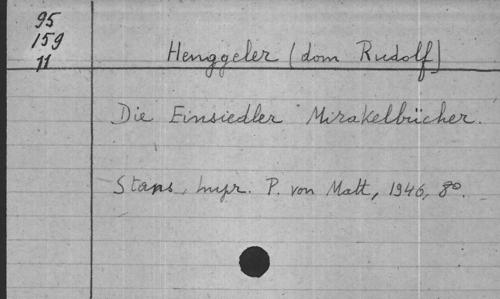 95
159
11
Henggeler (dom Rudolf)
Die Einsiedler Mirakelbücher.
Stans, Impr. P. von Matt, 1946, 8º.